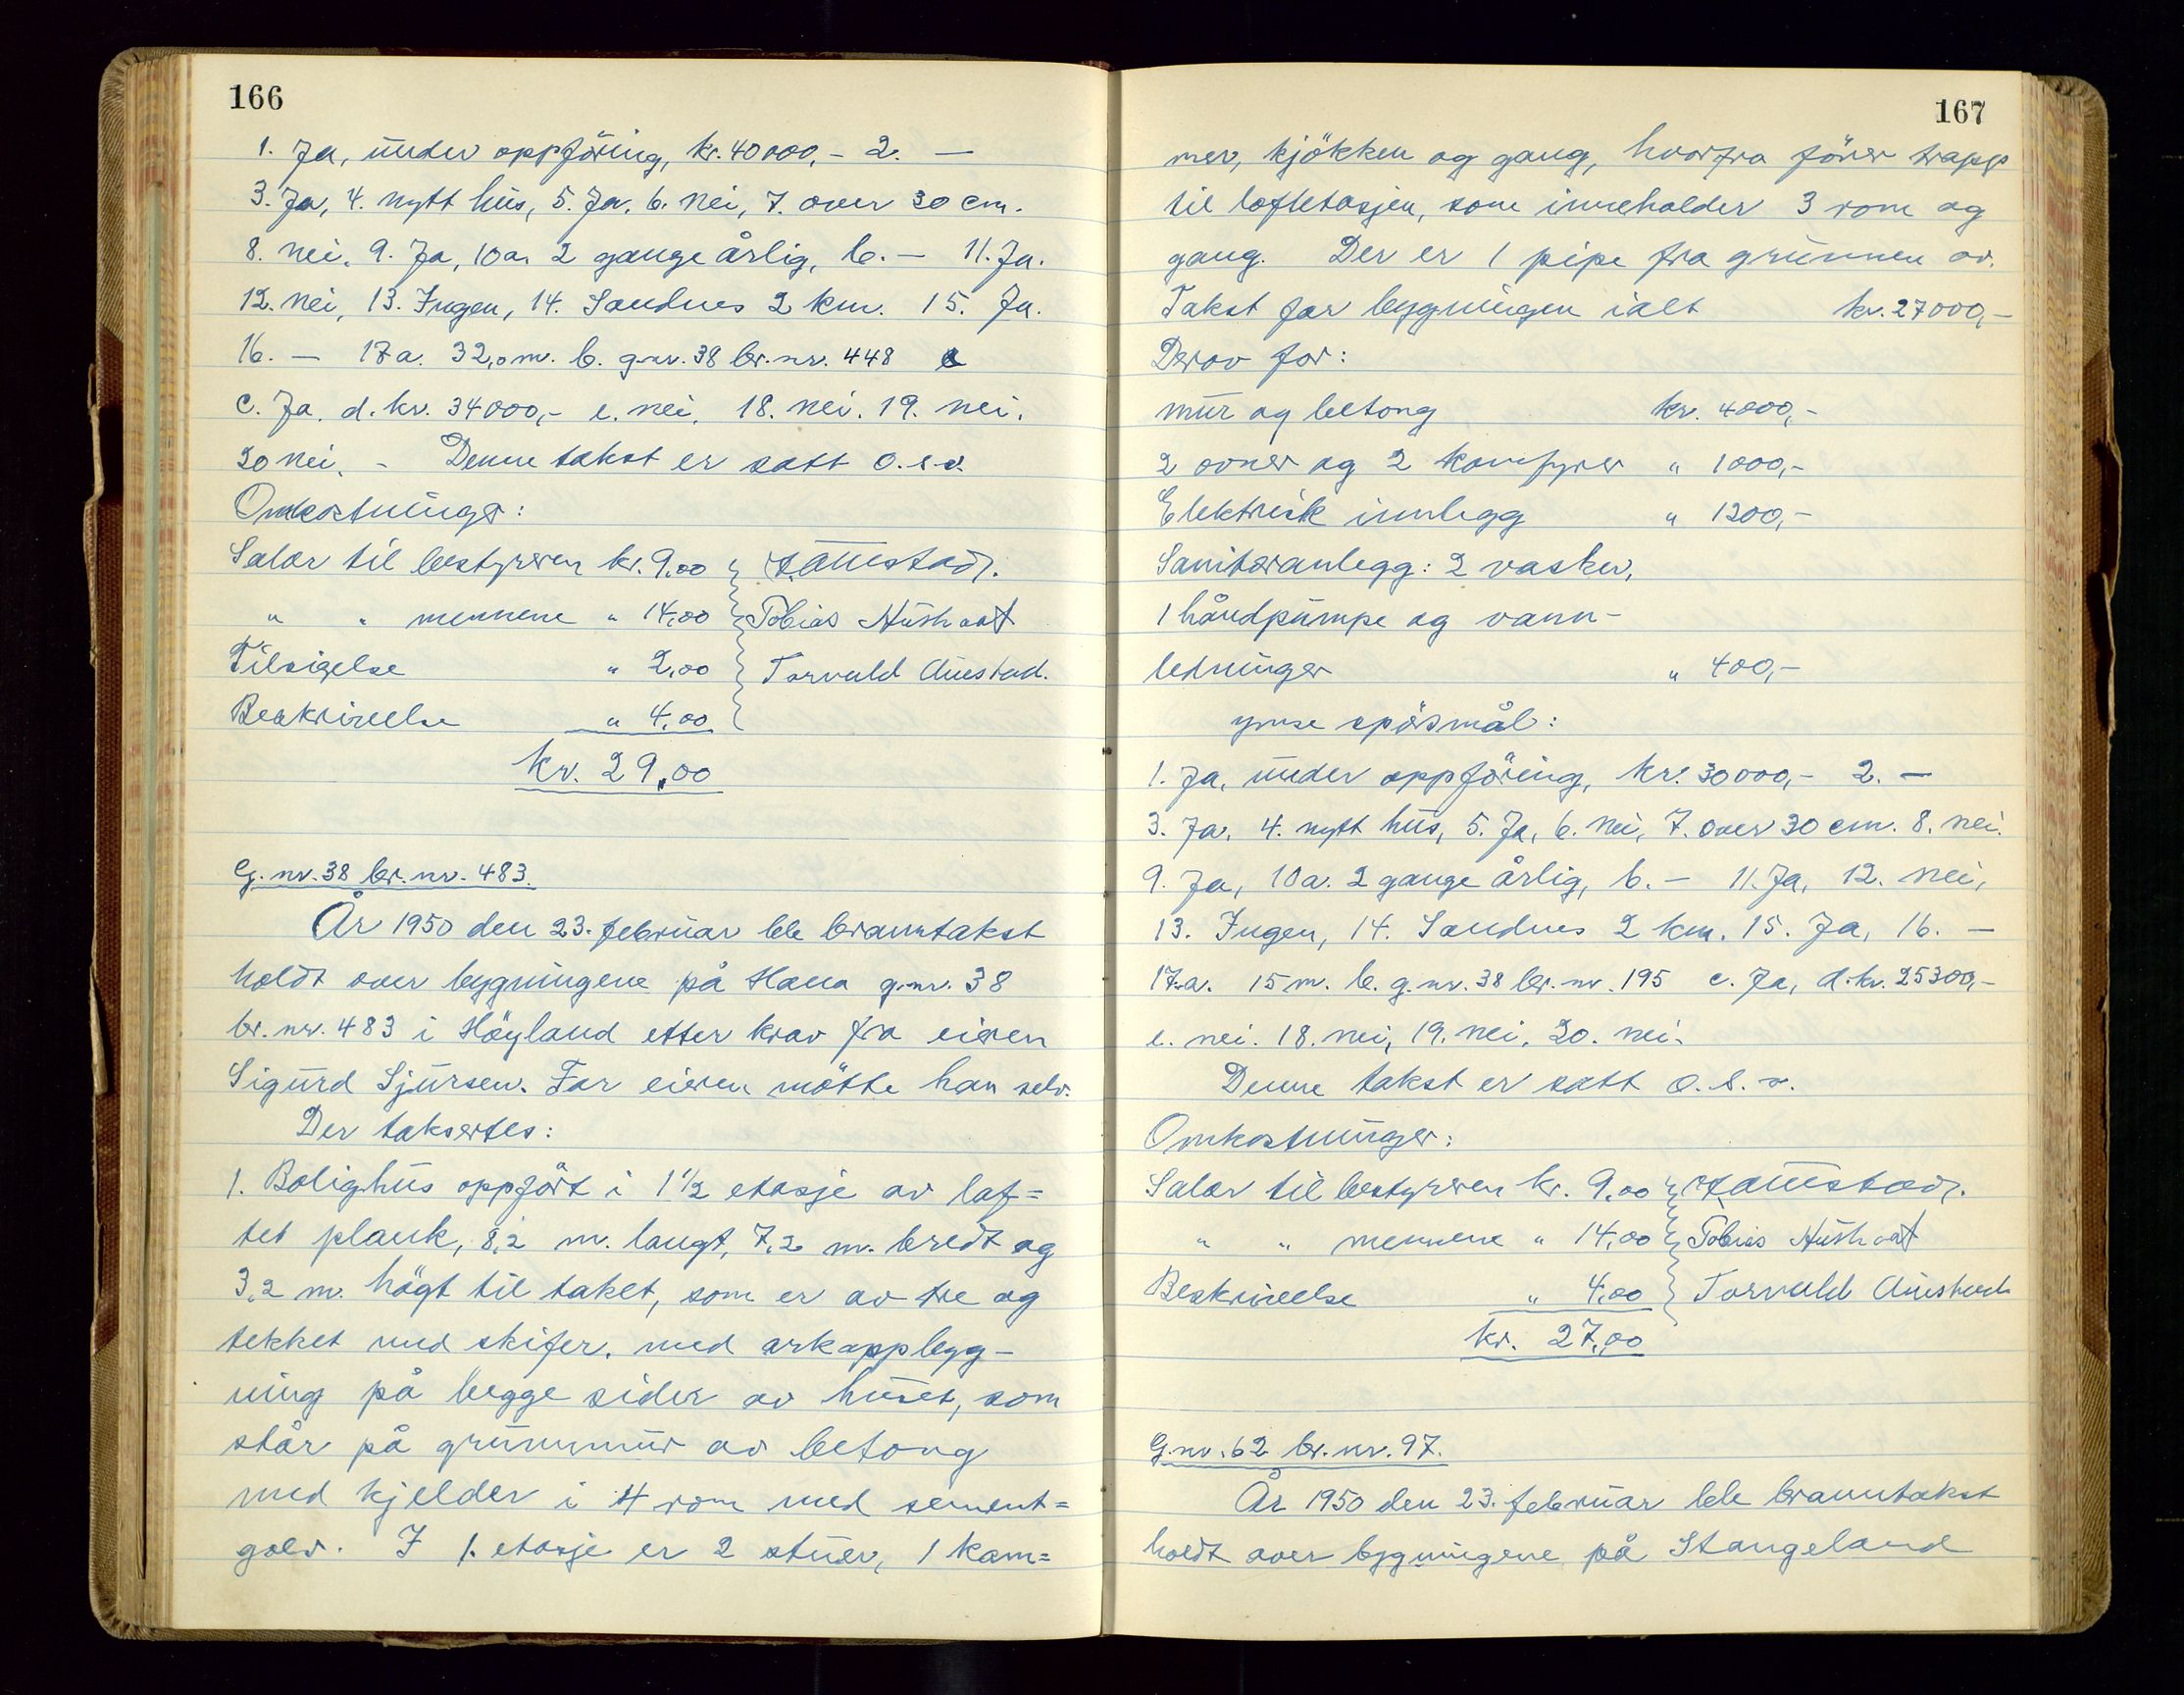 166
1. Ja, under oppföring, kr. 40000,- 2. —
3. Ja, 4. nytt hus, 5. Ja, 6. nei, 7. over 30 cm.
8. nei. 9. Ja, 10a. 2 gange årlig, b. — 11. Ja.
12. nei, 13. Ingen, 14. Sandnes 2 km. 15. Ja.
16. — 17a. 32,0 m. b. g.nr. 38 br.nr. 448
c. Ja. d. kr. 34000,- e. nei. 18. nei. 19. nei.
20 nei. - Denne takst er satt o.s.v.
Omkostninger:
Salær til bestyreren kr. 9,00
" " mennene " 14,00 Tobias Husholt
Tilsigelse " 2,00 Torvald Austad.
Beskrivelse " 4,00
kr. 29,00
G.nr. 38 br.nr. 483.
År 1950 den 23. februar ble branntakst
holdt over bygningene på Hana g.nr. 38
br.nr. 483 i Höyland etter krav fra eieren
Sigurd Sjursen. For eieren mötte han selv.
Der taksertes:
1. Bolighus oppfört i 1 1/2 etasje av laf=
tet plank, 8,2 m. langt, 7,2 m. bredt og
3,2 m. högt til taket, som er av tre og
tekket med skifer. med arkopplegg-
ning på begge sider av huset, som
står på grunnmur av betong
med kjelder i 4 rom med sement=
golv. I 1. etasje er 2 stuer, 1 kam=
167
mer, kjökken og gang, hvorfra förer trapp
til loftetasjen, som inneholder 3 rom og
gang. Der er 1 pipe fra grunnen av.
Takst for bygningen ialt kr. 27000,-
Derav for:
mur og betong kr. 4000,-
2 ovner og 2 komfyrer " 1000,-
Elektrisk innlegg " 1200,-
Sanitæranlegg: 2 vasker,
1 håndpumpe og vann-
ledninger " 400,-
ymse spörsmål:
1. Ja, under oppföring, kr. 30000,- 2. —
3. Ja. 4. nytt hus, 5. Ja, 6. nei, 7. over 30 cm. 8. nei.
9. Ja, 10a. 2 gange årlig, b. — 11. Ja, 12. nei,
13. Ingen, 14. Sandnes 2 km. 15. Ja, 16. —
17.a. 15 m. b. g.nr. 38 br.nr. 195 c. Ja, d. kr. 25300,-
e. nei. 18. nei, 19. nei. 20. nei.
Denne takst er satt o.s.v.
Omkostninger:
Salær til bestyreren kr. 9,00
" " mennene " 14,00 Tobias Husholt
Beskrivelse " 4,00 Torvald Austad
kr. 27,00
G.nr. 62 br.nr. 97.
År 1950 den 23. februar ble branntakst
holdt over bygningene på Stangeland